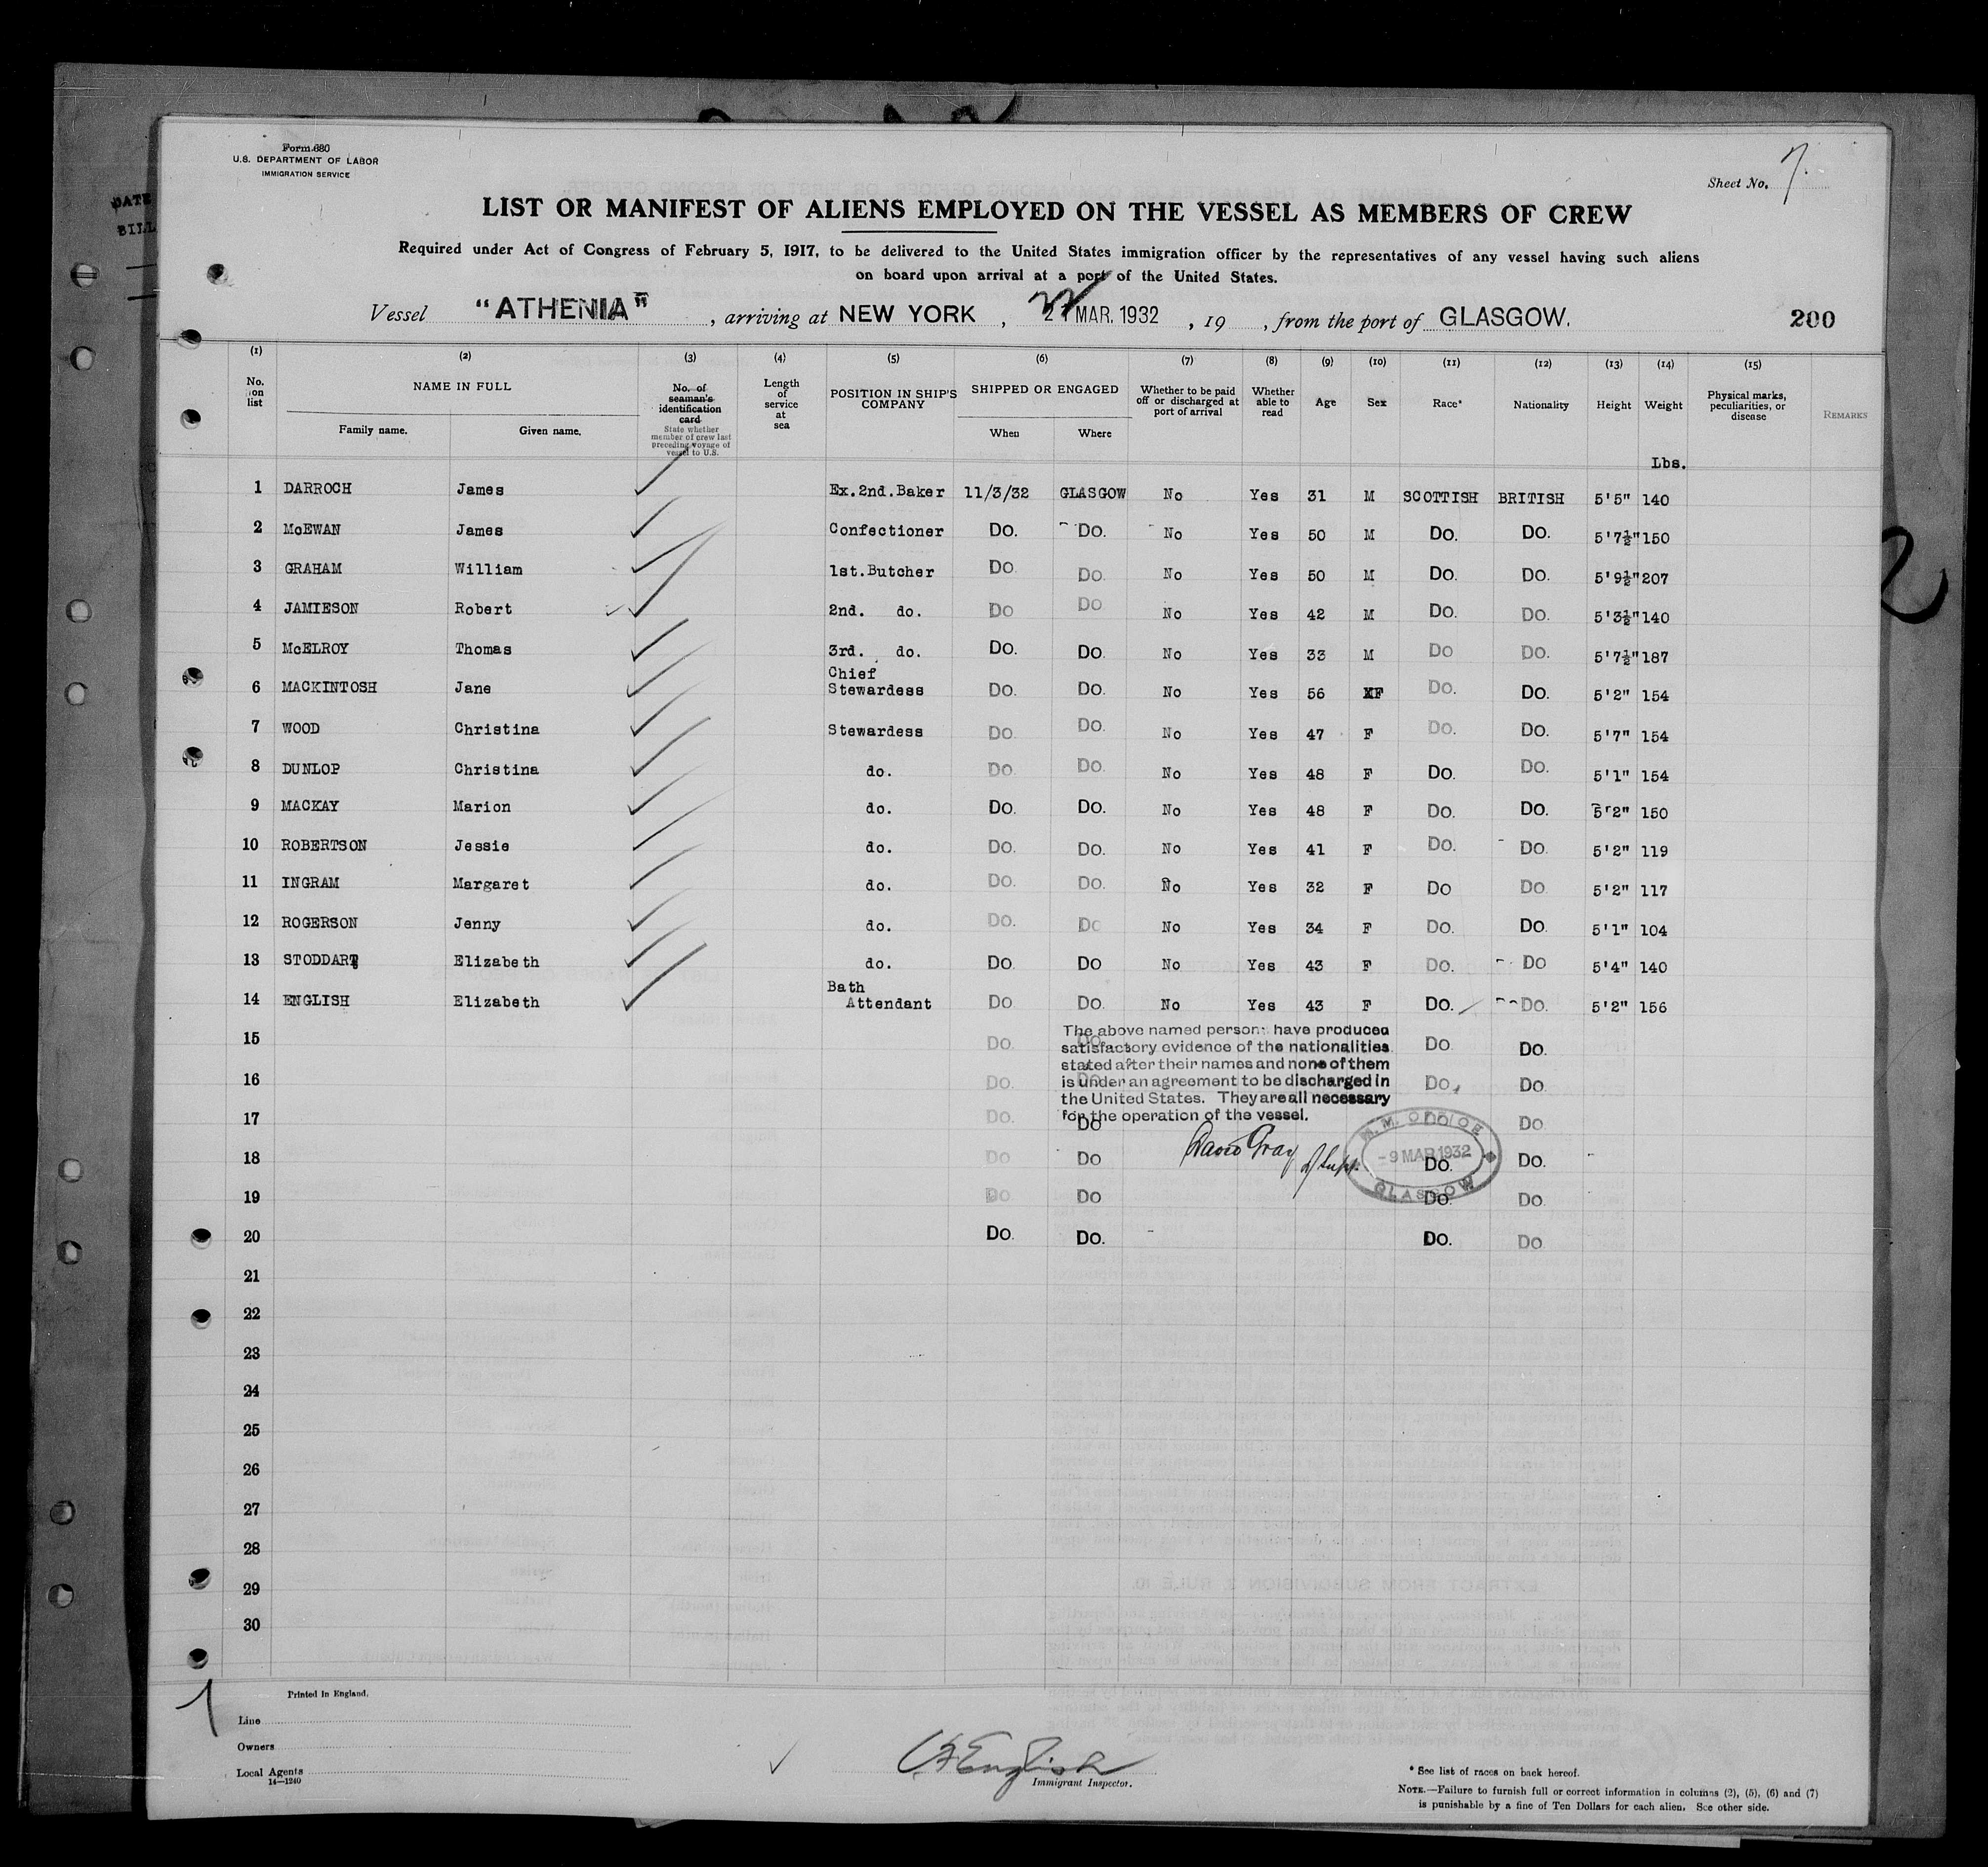 Form 680
U.S. DEPARTMENT OF LABOR
IMMIGRATION SERVICE
Sheet No. 7.
LIST OR MANIFEST OF ALIENS EMPLOYED ON THE VESSEL AS MEMBERS OF CREW
Required under Act of Congress of February 5, 1917, to be delivered to the United States immigration officer by the representatives of any vessel having such aliens
on board upon arrival at a port of the United States.
Vessel "ATHENIA", arriving at NEW YORK, 22 MAR. 1932, 19 , from the port of GLASGOW.
200
(1) (2) (3) (4) (5) (6) (7) (8) (9) (10) (11) (12) (13) (14) (15)
No. on list
NAME IN FULL
Family name. Given name.
No. of seaman's identification card
State whether member of crew last preceding voyage of vessel to U.S.
Length of service at sea
POSITION IN SHIP'S COMPANY
SHIPPED OR ENGAGED
When Where
Whether to be paid off or discharged at port of arrival
Whether able to read
Age
Sex
Race*
Nationality
Height
Weight
Physical marks, peculiarities, or disease
REMARKS
Lbs.
1 DARROCH James Ex.2nd.Baker 11/3/32 GLASGOW No Yes 31 M SCOTTISH BRITISH 5'5" 140
2 McEWAN James Confectioner Do. Do. No Yes 50 M Do. Do. 5'7½" 150
3 GRAHAM William 1st.Butcher Do Do. No Yes 50 M Do. Do. 5'9½" 207
4 JAMIESON Robert 2nd. do. Do Do No Yes 42 M Do. Do. 5'3½" 140
5 McELROY Thomas 3rd. do. Do. Do. No Yes 33 M Do Do. 5'7½" 187
6 MACKINTOSH Jane Chief Stewardess Do. Do. No Yes 56 F Do. Do. 5'2" 154
7 WOOD Christina Stewardess Do. Do. No Yes 47 F Do. Do. 5'7" 154
8 DUNLOP Christina do. Do. Do. No Yes 48 F Do. Do. 5'1" 154
9 MACKAY Marion do. Do. Do. No Yes 48 F Do. Do. 5'2" 150
10 ROBERTSON Jessie do. Do. Do. No Yes 41 F Do. Do. 5'2" 119
11 INGRAM Margaret do. Do. Do. No Yes 32 F Do Do. 5'2" 117
12 ROGERSON Jenny do. Do. Do No Yes 34 F Do. Do. 5'1" 104
13 STODDART Elizabeth do. Do. Do No Yes 43 F Do. Do 5'4" 140
14 ENGLISH Elizabeth Bath Attendant Do Do. No Yes 43 F Do. Do. 5'2" 156
15 Do. Do. Do Do.
16 Do. Do. Do. Do.
17 Do. Do Do Do
18 Do Do Do. Do.
19 Do. Do Do. Do
20 Do. Do. Do. Do
The above named persons have produced
satisfactory evidence of the nationalities
stated after their names and none of them
is under an agreement to be discharged in
the United States. They are all necessary
for the operation of the vessel.
David Gray
d/Supt.
M.M. OFFICE
-9 MAR 1932
GLASGOW
21
22
23
24
25
26
27
28
29
30
Printed in England.
Line
Owners
Local Agents
14—1240
English
Immigrant Inspector.
* See list of races on back hereof.
NOTE.—Failure to furnish full or correct information in columns (2), (5), (6) and (7)
is punishable by a fine of Ten Dollars for each alien. See other side.
DATE
BILL